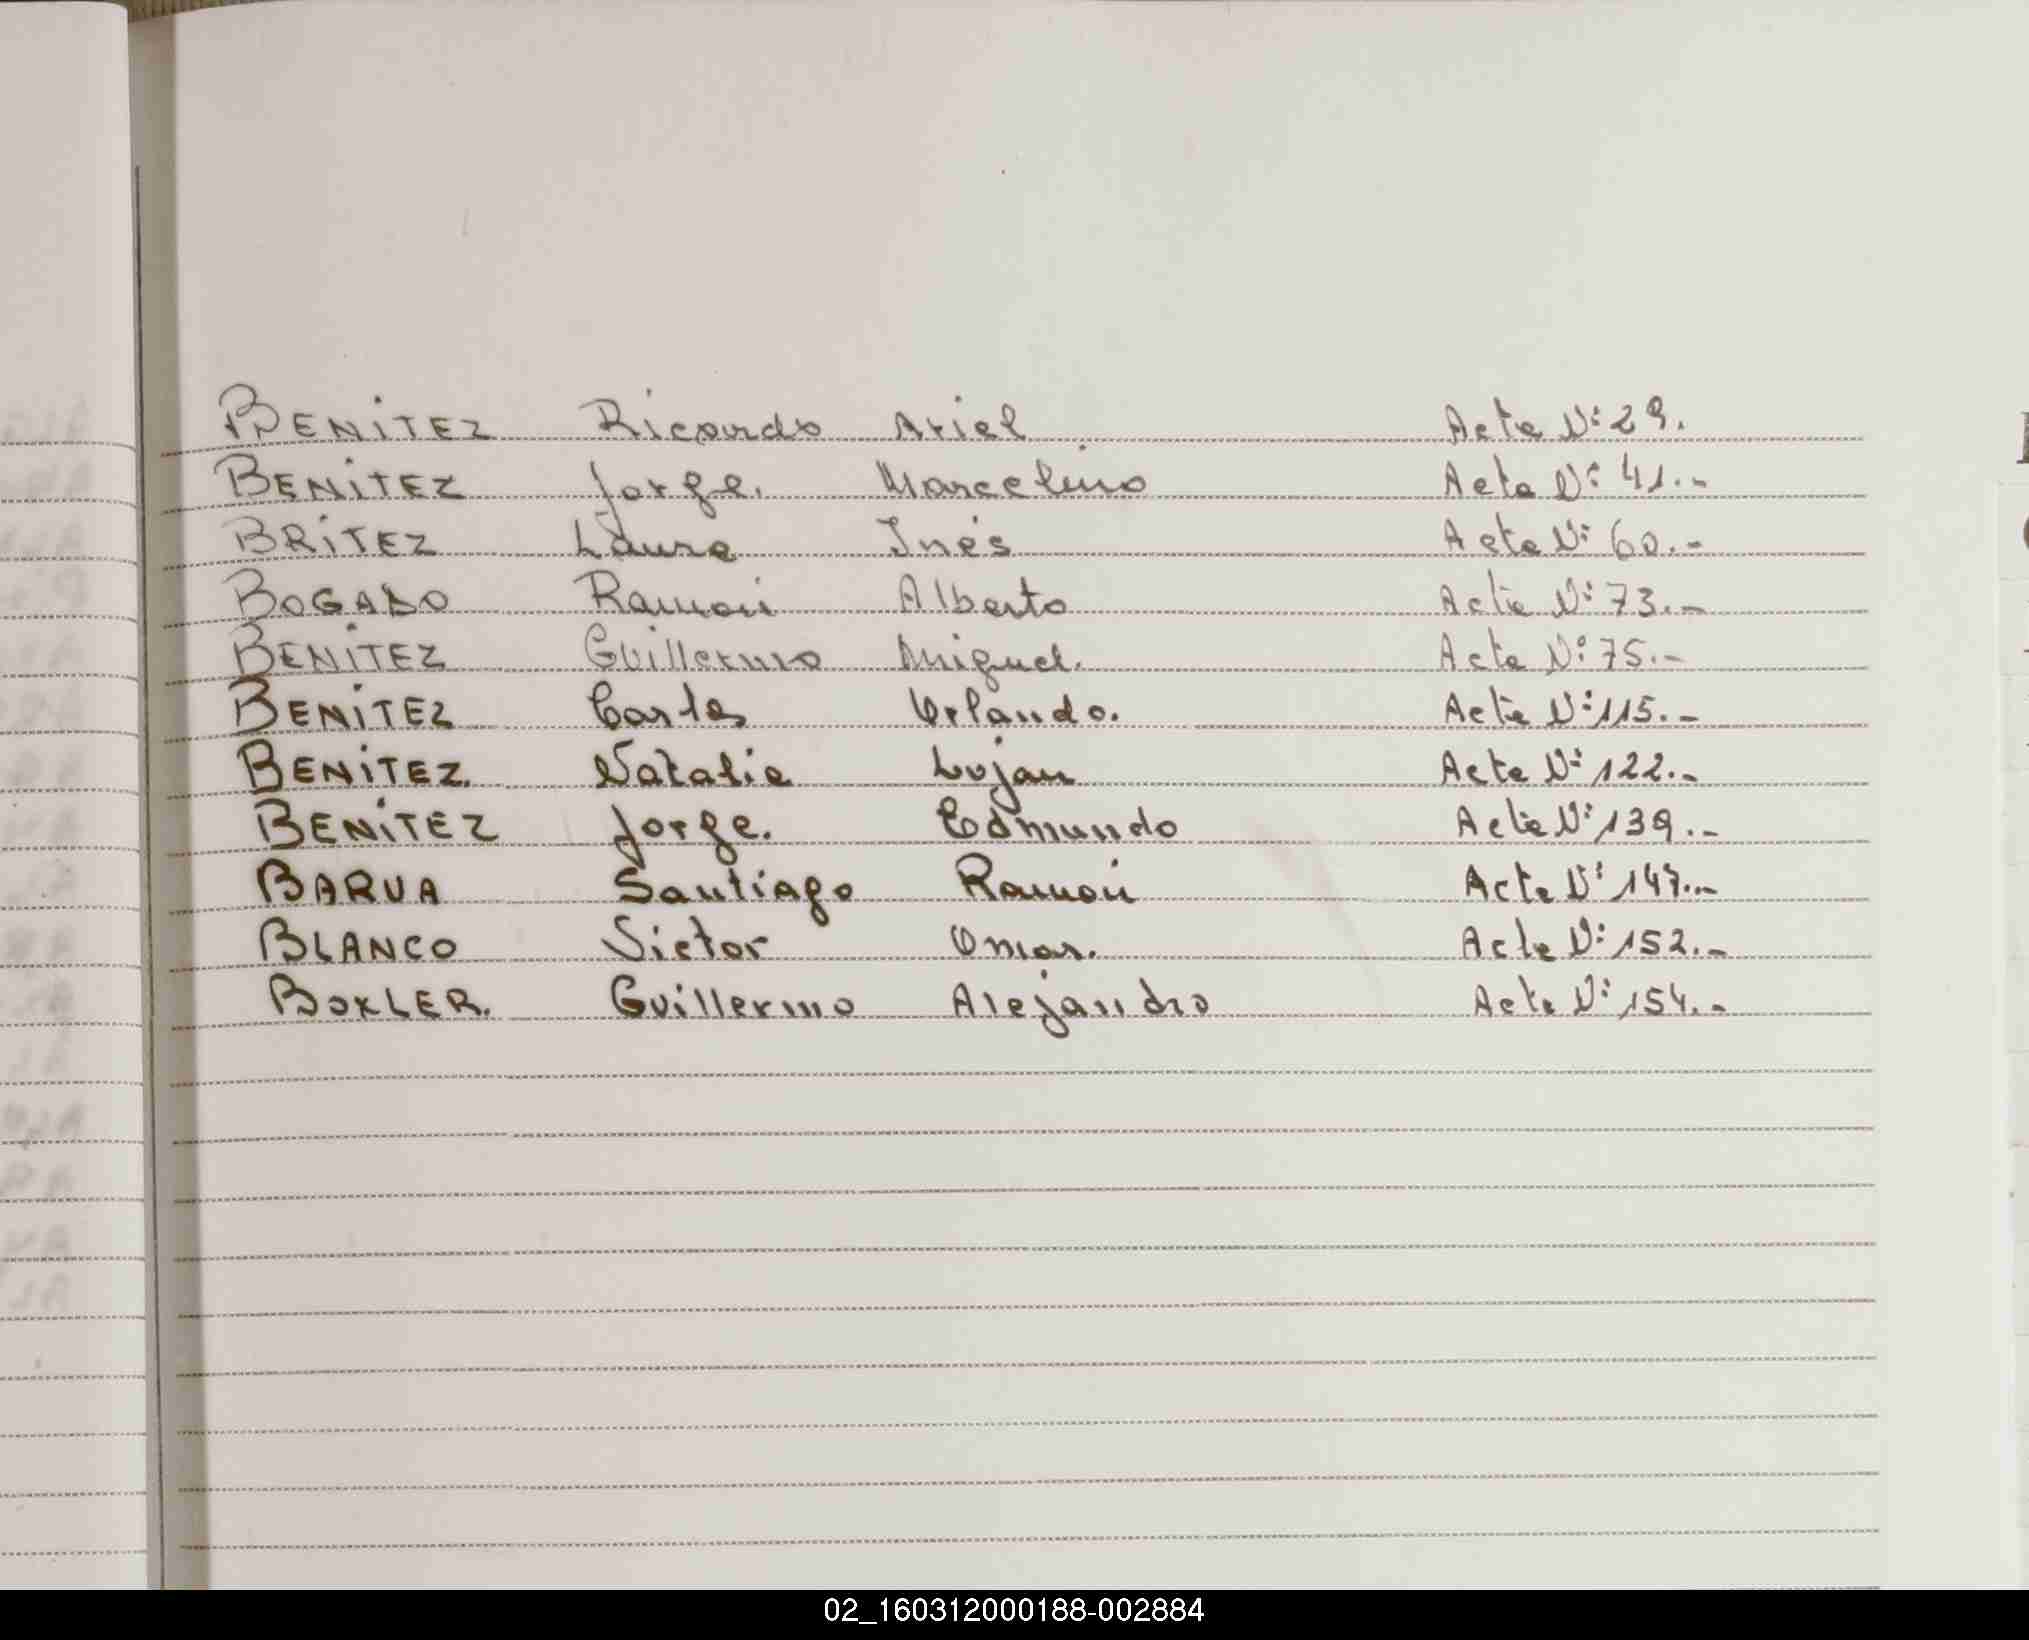 BENITEZ Ricardo Ariel Acta Nº: 29.
BENITEZ Jorge. Marcelino Acta Nº: 41.-
BRITEZ Laura Inés Acta Nº: 60.-
BOGADO Ramón Alberto Acta Nº: 73.-
BENITEZ Guillermo Miguel. Acta Nº: 75.-
BENITEZ Carlos Orlando. Acta Nº: 115.-
BENITEZ. Natalia Luján Acta Nº: 122.-
BENITEZ Jorge. Edmundo Acta Nº: 139.-
BARUA Santiago Ramón Acta Nº 147.-
BLANCO Victor Omar. Acta Nº: 152.-
BOXLER. Guillermo Alejandro Acta Nº: 154.-
02_160312000188-002884